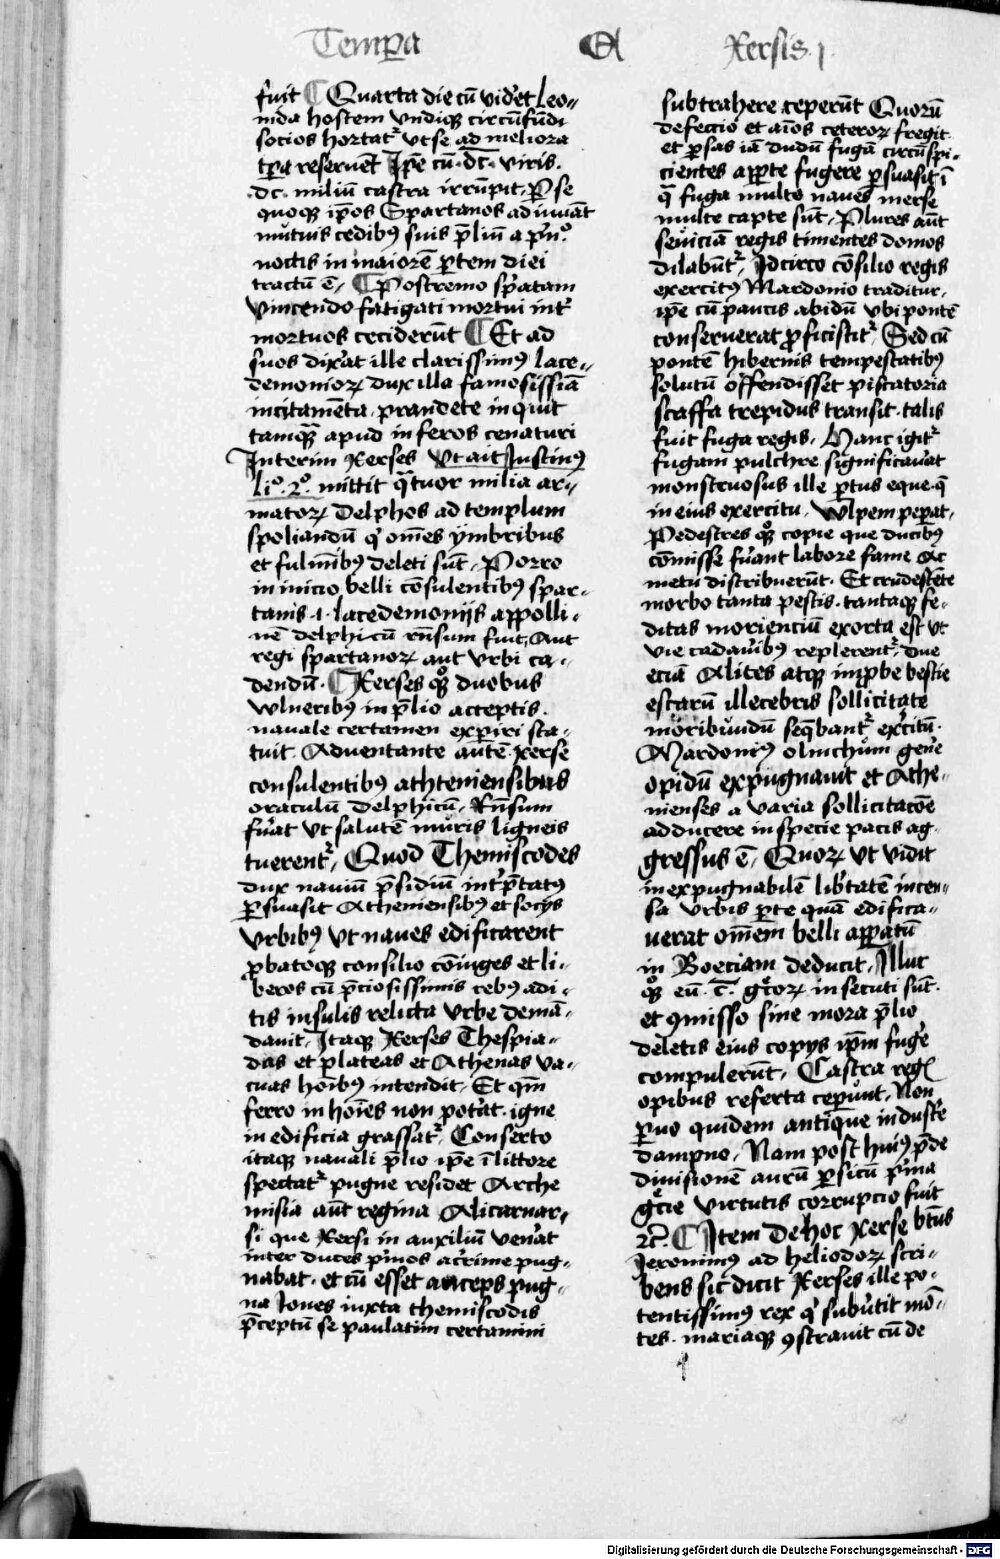 Temp̲a A Xersis .1.
fuit ¶ Quarta die cū vid'et Leo-
nida hostem vndiqꝫ circūfūdi
socios hortat᷑ vt se ad meliora
tp̲a reseruēt Ip̄e cū .dc. viris.
.dc. miliū castra irrūpit. P̲ se
quoqꝫ ip̄os Spartanos adiuuāt
mutuis cedibꝰ suis p̄liū a p'n.º
noctis in maiorē p̲tem diei
tractū ē. ¶ Postremo sp̄atam
vincendo fatigati mortui int᷑
mortuos ceciderūt ¶ Et ad
suos dixa̓t ille clarissimꝰ Lace-
demonioꝝ dux illa famosissiā
incitamēta. prandete inquit
tamqꝫ̄ apud inferos cenaturi
Interim Xerses vt ait Justinꝰ
li.º 2.º mittit q̄tuor milia ar-
matoꝝ Delphos ad templum
spoliandū q' om̄es ymbribus
et fulmībꝰ deleti sūt. Porro
in inicio belli cōsulentibꝰ spar-
tanis .i. lacedemonijs appolli-
nē delphicū rn̄sum fuit, Aut
regi spartanoꝝ aut vrbi ca-
dendū. ¶ Xerses qꝫº duobus
vulneribus in p̄lio acceptis.
nauale certamen exp̲iri sta-
tuit. Aduentante autē xerse
consulentibꝰ atheniensibus
oraculū Delphicū. Rn̄sum
fua̓t vt salutē muris ligneis
tuerent᷑. Quod Themiscodes
dux nauiū p̄sidiū int᷑p̄tatꝰ
p̲suasit Atheniensibꝰ et socijs
vrbibꝰ vt naues edificarent
ꝓbatoqꝫ consilio cōiuges et li-
beros cū p̄ciosissimis rebꝰ adi-
tis insulis relicta vrbe demā-
dauit. Itaqꝫ Xerses Thespia-
das et plateas et Athenas va-
cuas hoībꝰ intendit. Et qm̄
ferro in hoīes non potat. igne
in edificia grassat᷑. Conserto
itaqꝫ nauali p̄lio ip̄e ī littore
spectat᷑ pugne residet Arche
misia aūt regina Alicarnar-
si que Xersi in auxiliū vena̓t
inter duces p'mos ac̓rime pug-
nabat. et cū esset anceps pug-
na Iones iuxta themiscodis
p̄ceptū se paulatim certamini
subtrahere ceperūt Quorū
defectio et aīos ceteroꝝ fregit
et p̲sas iā dudū fugā circūspi-
cientes ap̲te fugere p̲suasit ī
q̄ fuga multe naues merse
multe capte sūt. Plures aūt
seuiciā regis timentes domos
dilabūt᷑. Idcirco cōsilio regis
exercitꝰ Mardonio traditur.
ip̄e cū paucis abidū vbi pontē
conseruerat ꝓficiscit᷑. Sed cū
pontē hibernis tempestatibꝰ
solutū offendisset piscatoria
scaffa trepidus transit. talis
fuit fuga regis. Hanc igit᷑
fugam pulchre significaua̓t
monstruosus ille p̲tus eque. q̄
in eius exercitu. Wlpem pep̲at.
Pedestres qꝫº copie que ducibꝰ
cōmisse fua̓nt labore fame Ac
metu distribuerūt. Et crudescēte
morbo tanta pestis. tantaqꝫ fe-
ditas morienciū exorta est vt
vie cadau̓ibꝰ replerent᷑. due
eciā Alites atqꝫ imp̲be bestie
escarū illecebris sollicitate
moribundū seq̄bant᷑ exc̓itū.
Mardonꝰ olinchum gen̓e
opidū expugnauit et Athe-
nienses a varia sollicitacōe
adducere in specie pacis ag-
gressus ē. Quoꝝ vt vidit
inexpugnabilē lib̓tatē incen-
sa vrbis p̲te quā edifica-
uerat om̄em belli app̲atū
in Boeciam deducit. Illuc
qꝫº eū .c̄. gc̄oꝝ insecuti sūt.
et ꝯmisso sine mora p̄lio
deletis eius copijs ip̄m fug̓e
compulerūt. Castra reg̓
opibus referta cepūnt. Non
p̲uo quidem antique industrie
dampno. Nam post huiꝰ p̄de
diuisionē aurū p̲sicū p'ma
gc̄ie virtutis corrupcio fuit
⁊c̄. ¶ Item de hoc Xerse b̄tus
Jeronimus ad heliodoꝝ scri-
bens sic dicit Xerses ille po-
tentissimꝰ rex q' sub̓tit mō-
tes. mariaqꝫ ꝯstrauit cū de
Digitalisierung gefördert durch die Deutsche Forschungsgemeinschaft - DFG